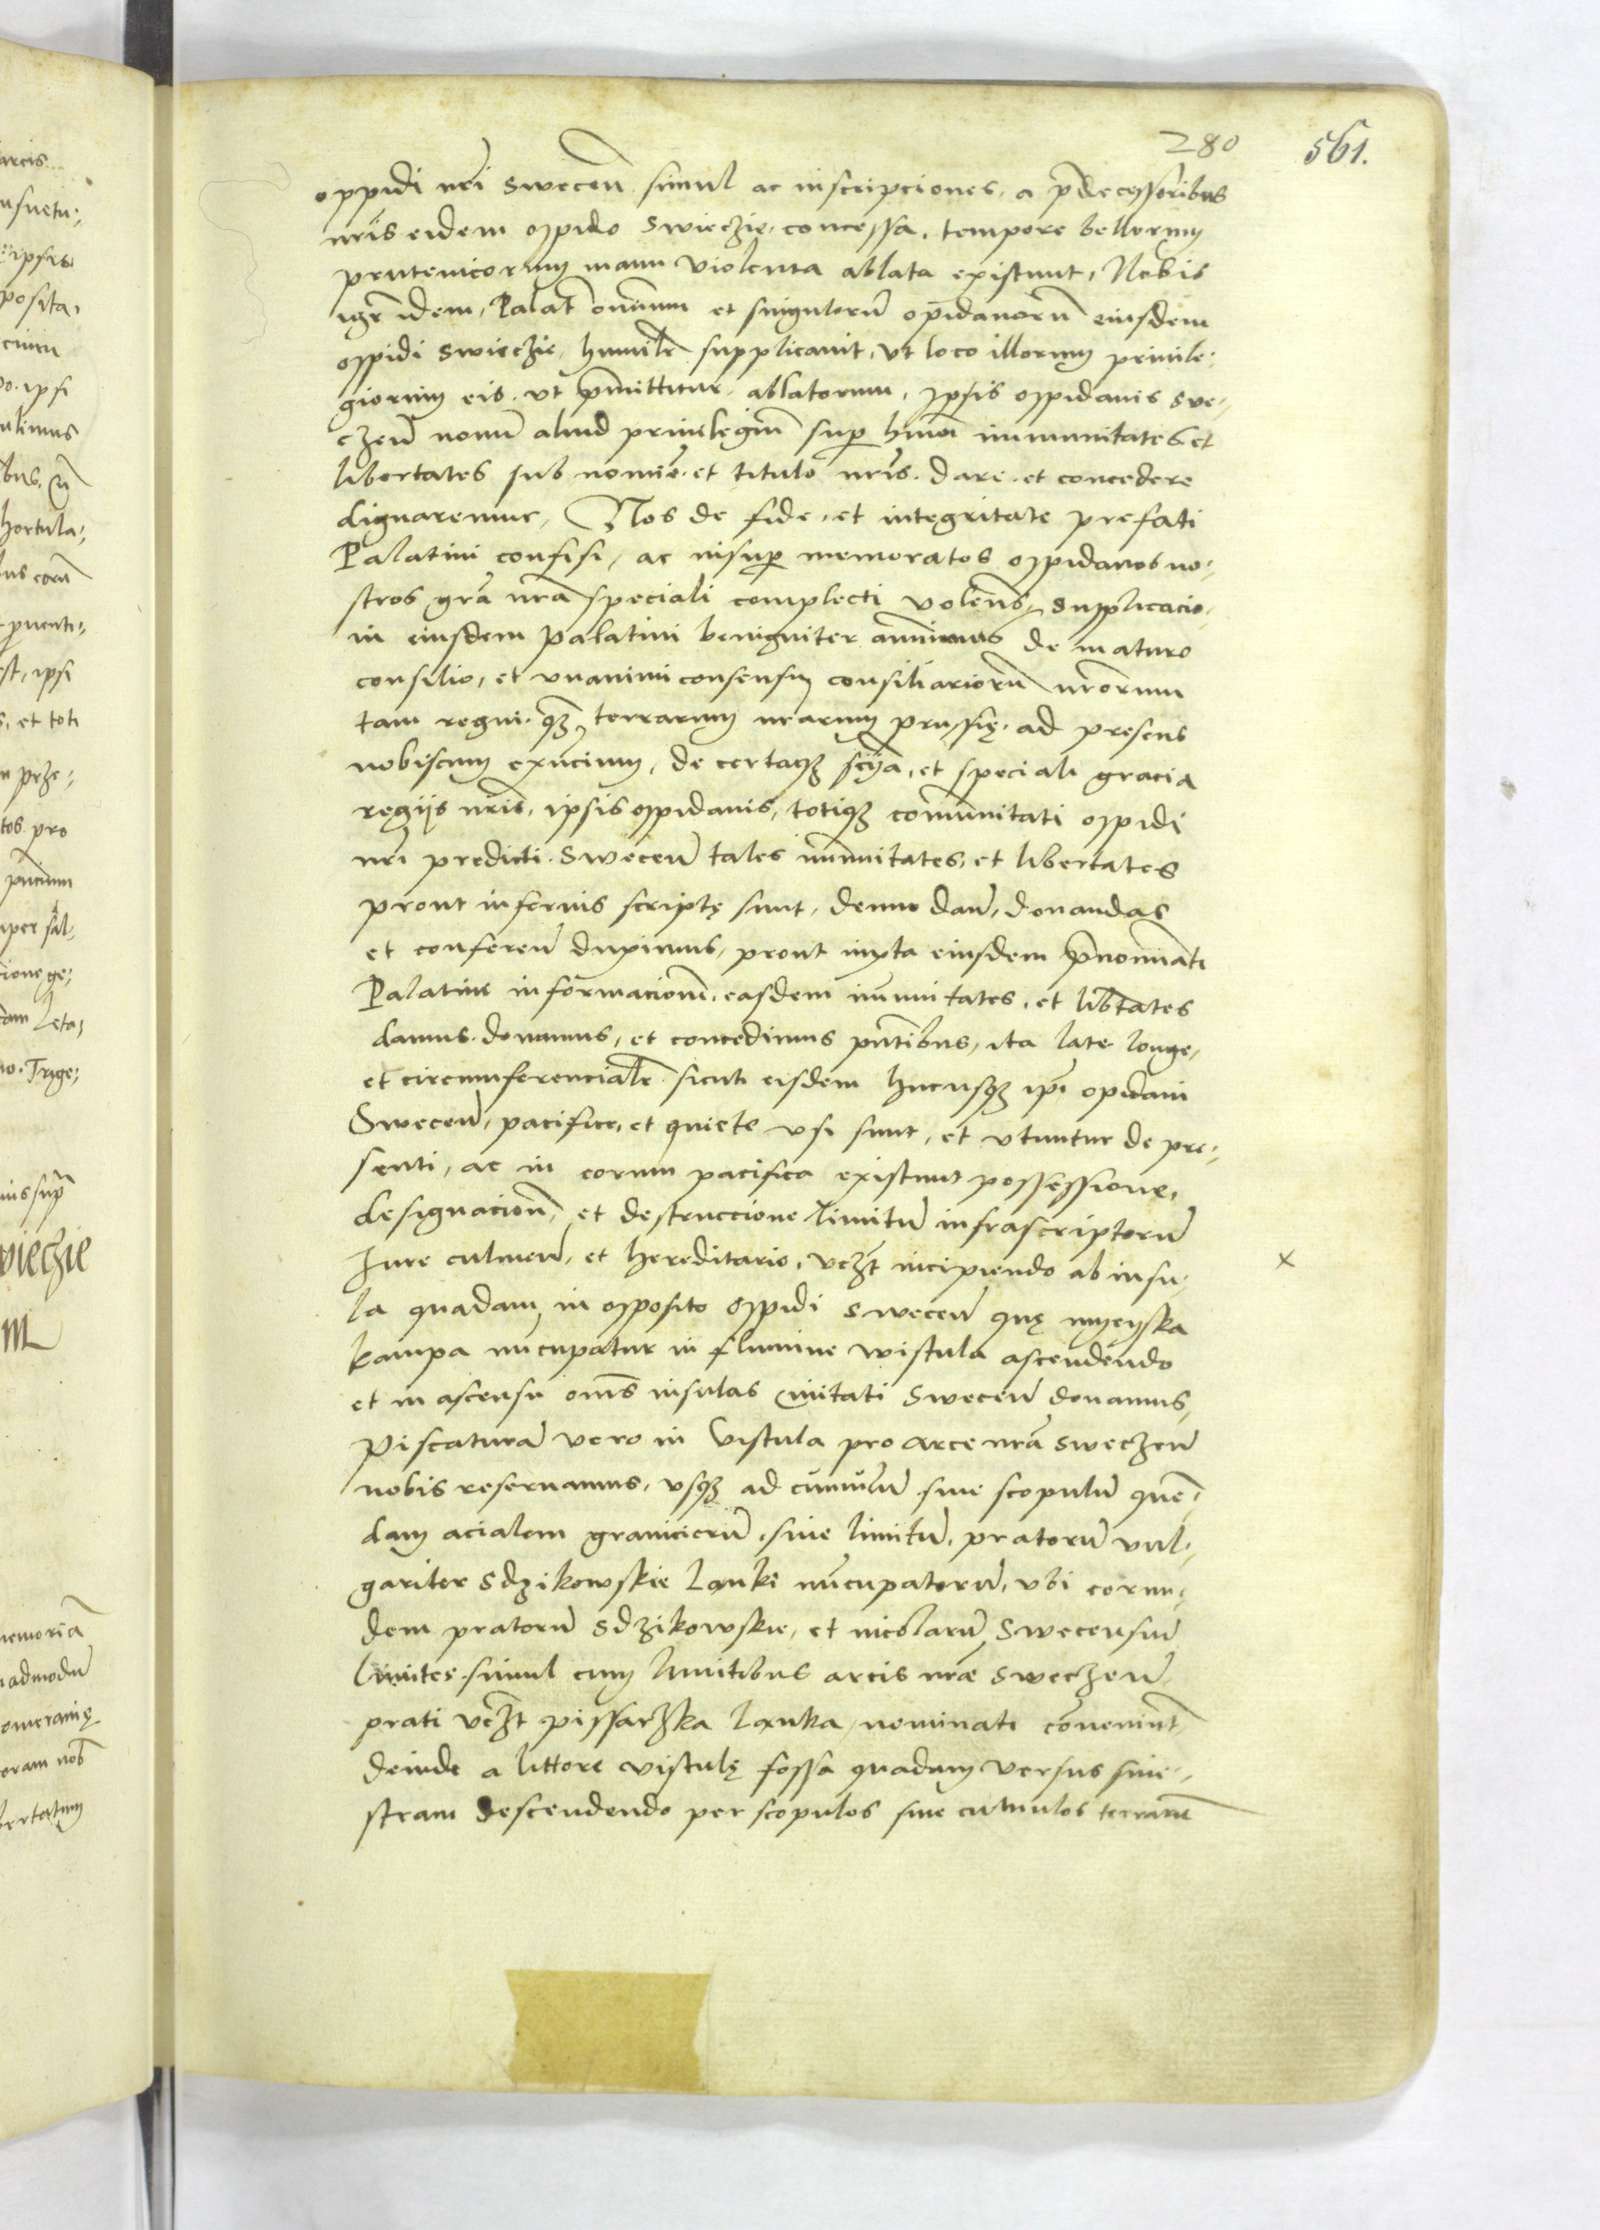 280 561.
oppidi nr̄i Swecen̄ simul ac inscripciones, a p̄decessoribus
nr̄is eidem oppido Swieczie, concessa, tempore bellorum
prutenicorum manu violenta ablata existunt, Nobis
igr̄ idem, Palat̄ omnium et singulorū opidanorū eiusdem
oppidi Swieczie, humilr̄ supplicauit, vt loco illorum priuile:
giorum eis, vt p̄mittitur, ablatorum, ipsis oppidanis Sve:
czen̄ nouū aliud priuilegiū sup̄ hmōi immunitates et
libertates sub nomīe et titulo nr̄is dare et concedere
dignaremur, Nos de fide, et integritate prefati
Palatini confisi, ac insup̄ memoratos oppidanos no:
stros gr̄a nr̄a speciali complecti volens, supplicacio:
ni eiusdem Palatini benigniter annuimus de maturo
consilio, et vnanimi consensu consiliariorū nr̄orum
tam regni qz̄ terrarum nr̄arum prussię ad presens
nobiscum exn̄cium, de certaqz sc̄ija, et speciali gracia
regijs nr̄is, ipsis oppidanis, totiqz comūnitati oppidi
nr̄i predicti Swecen̄ tales im̄unitates, et libertates
prout inferius scriptę sunt, denuo dan̄, donandas
et conferen̄ duximus, prout iuxta eiusdem p̄nominati
Palatini informacionē, easdem im̄unitates, et lib̄tates
damus donamus, et concedimus pn̄tibus, ita late longe,
et circumferencialr̄ sicuti eisdem hucusqz ip̄i opidani
Swecen̄, pacifice, et quiete vsi sunt, et vtuntur de pre:
senti, ac in eorum pacifica existunt possessione,
designacionē, et destruccione limitū infrascriptorū
Iure culmen̄, et hereditario, vcz̄t incipiendo ab insu: x
la quadam in opposito oppidi Swecen̄ quę myeyska
kampa nūcupatur in flumine wistula ascendendo
et in ascensu om̄s insulas ciuitati Swecen̄ donamus,
Piscaturā vero in Vistula pro arce nr̄a Sweczen̄
nobis reseruamus, vsqz ad cumulū siue scopulū quē:
dam acialem granicierū, siue limitū, pratorū vul:
gariter Sdzikowskie Lanki nūcupatorū, vbi eorun:
dem pratorū Sdzikowskie, et incolarū Swecensiū
limites simul cum limitibus arcis nr̄æ Sweczen̄
prati vcz̄t pissarzka Lanka, nominati conueniūt
deinde a littore vistulę fossa quadam versus sini:
stram descendendo per scopulos siue cumulos terrarū